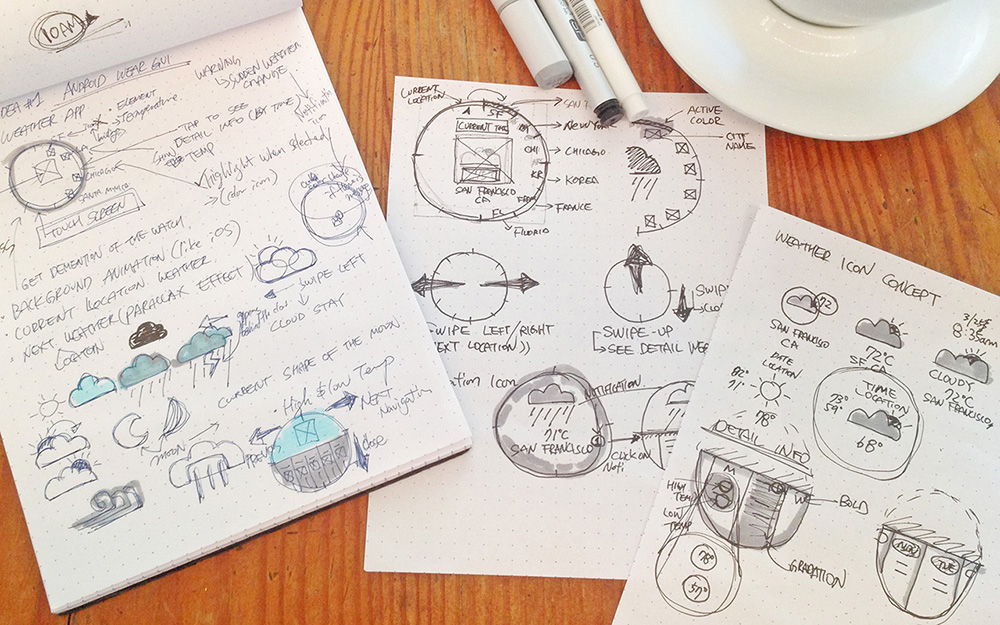 10AM
IDEA #1 ANDROID WEAR GUI
WEATHER APP
• ELEMENT
Temperature.
WARNING
↳ SUDDEN WEATHER
CHANGE
TAP TO SEE
DETAIL INFO (BY TIME)
TEMP
CHICAGO
SANTA MONICA
Highlight when selected
(color icons)
TOUCH SCREEN
GET DEMENTION OF THE WATCH.
• BACKGROUND ANIMATION (like iOS)
CURRENT LOCATION WEATHER.
• NEXT WEATHER (PARALLAX EFFECT)
LOCATION
SWIPE LEFT
↓
CLOUD STAY
CURRENT SHAPE OF THE MOON.
moon
• High & low Temp
NEXT
Navigation
close
CURRENT
LOCATION
SF
SAN
NEW YORK
CHICAGO
KOREA
FRANCE
FLORID
CHI
KR
FL
SAN FRANCISCO
CA
ACTIVE
COLOR
CITY
NAME
SWIPE LEFT/RIGHT
NEXT LOCATION))
SWIPE-UP
↳ SEE DETAIL
SWIP
Icon
NOTIFICATION.
71°C
SAN FRANCISCO
CLICK ON
Noti
WEATHER ICON CONCEPT
72
SAN FRANCISCO
CA
72°C
SF, CA
8:35am
CLOUDY
72°C
SAN FRANCISCO
DATE
LOCATION
78°
TIME
LOCATION
73°
59°
68°
DETAIL INFO
M
W
HIGH
TEMP
LOW
TEMP
BOLD
GRADATION
78°
57°
TUE